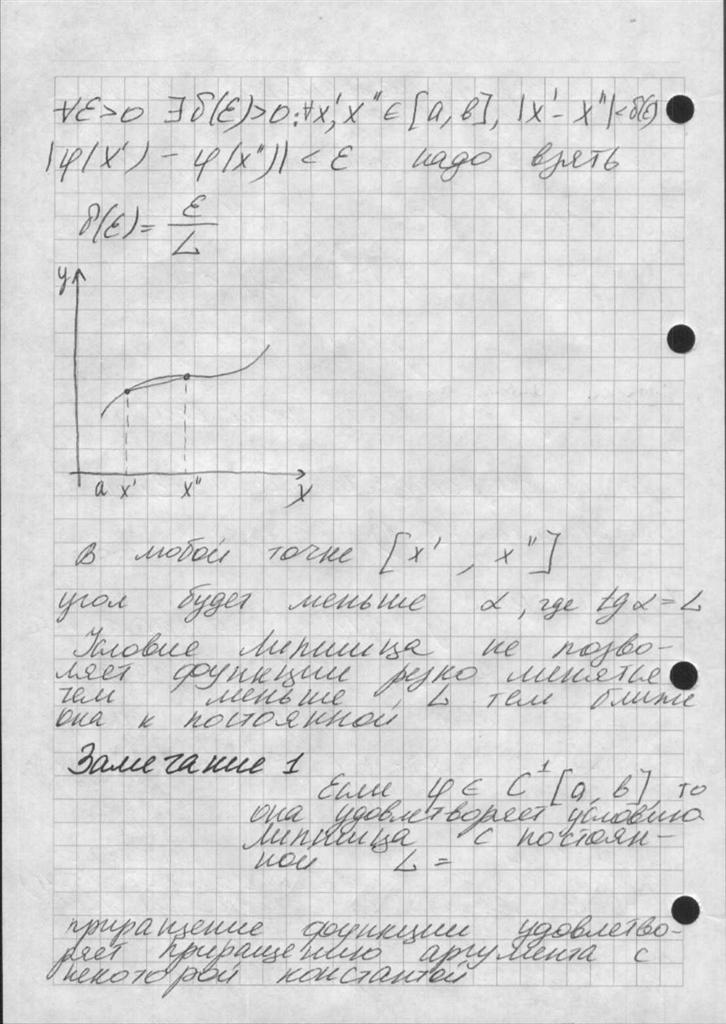 ∀ε>0 ∃δ(ε)>0: ∀x', x'' ∈ [a, b], |x' - x''| < δ(ε)
|φ(x') - φ(x'')| < ε надо взять
δ(ε) = ε/L
y
a x' x'' x
В любой точке [x', x'']
угол будет меньше α, где tg α = L
Условие Липшица не позво-
ляет функции резко меняться
чем меньше, L тем ближе
она к постоянной
Замечание 1
Если φ ∈ C¹[a, b], то
она удовлетворяет условию
Липшица с постоян-
ной L =
приращение функции удовлетво-
ряет приращению аргумента с
некоторой константой